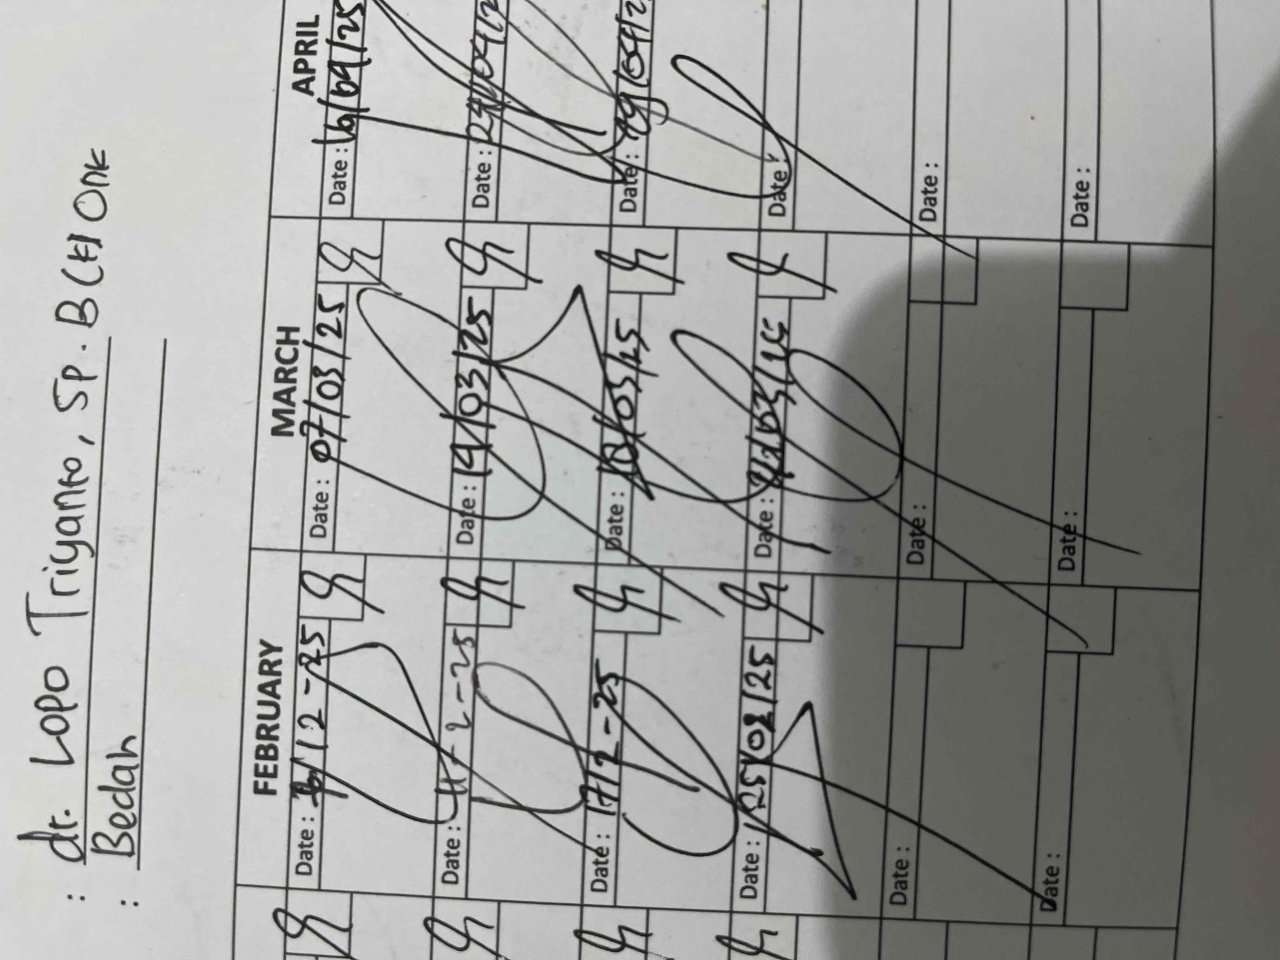 : dr. LOPO Triyanto, Sp. B (K) Onk
: Bedah
FEBRUARY MARCH APRIL
Date : Date : 07/03/25 Date :
Date : 11-2-25 Date : 14/03/25 Date :
Date : 17/2-25 Date : Date :
Date : 25/02/25 Date : Date :
Date : Date : Date :
Date : Date : Date :